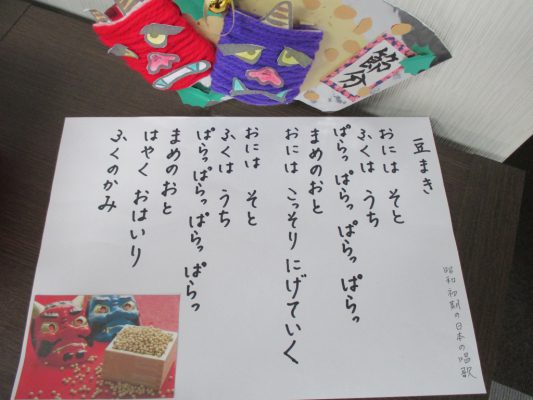 節分
豆まき
おには そと
ふくは うち
ぱらっ ぱらっ ぱらっ ぱらっ
まめのおと
おには こっそり にげていく
おには そと
ふくは うち
ぱらっ ぱらっ ぱらっ ぱらっ
まめのおと
はやく おはいり
ふくのかみ
昭和 初期の日本の唱歌